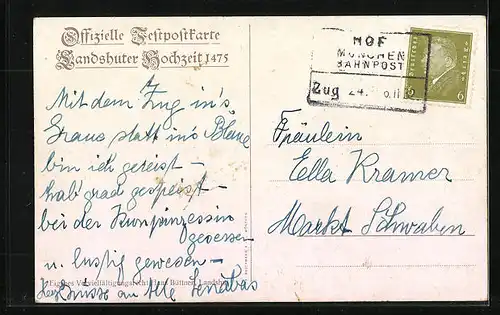 Offizielle Festpostkarte
Landshuter Hochzeit 1475
HOF
MÜNCHEN
BAHNPOST
Zug 24.
6 6
Mit dem Zug in's
Graue statt in's Blaue
bin ich gereist –
hab grad gespeist –
bei der Kronprinzessin
gesessen
u. lustig gewesen –
Grüsse an Alle
Fräulein
Ella Kramer
Markt Schwaben